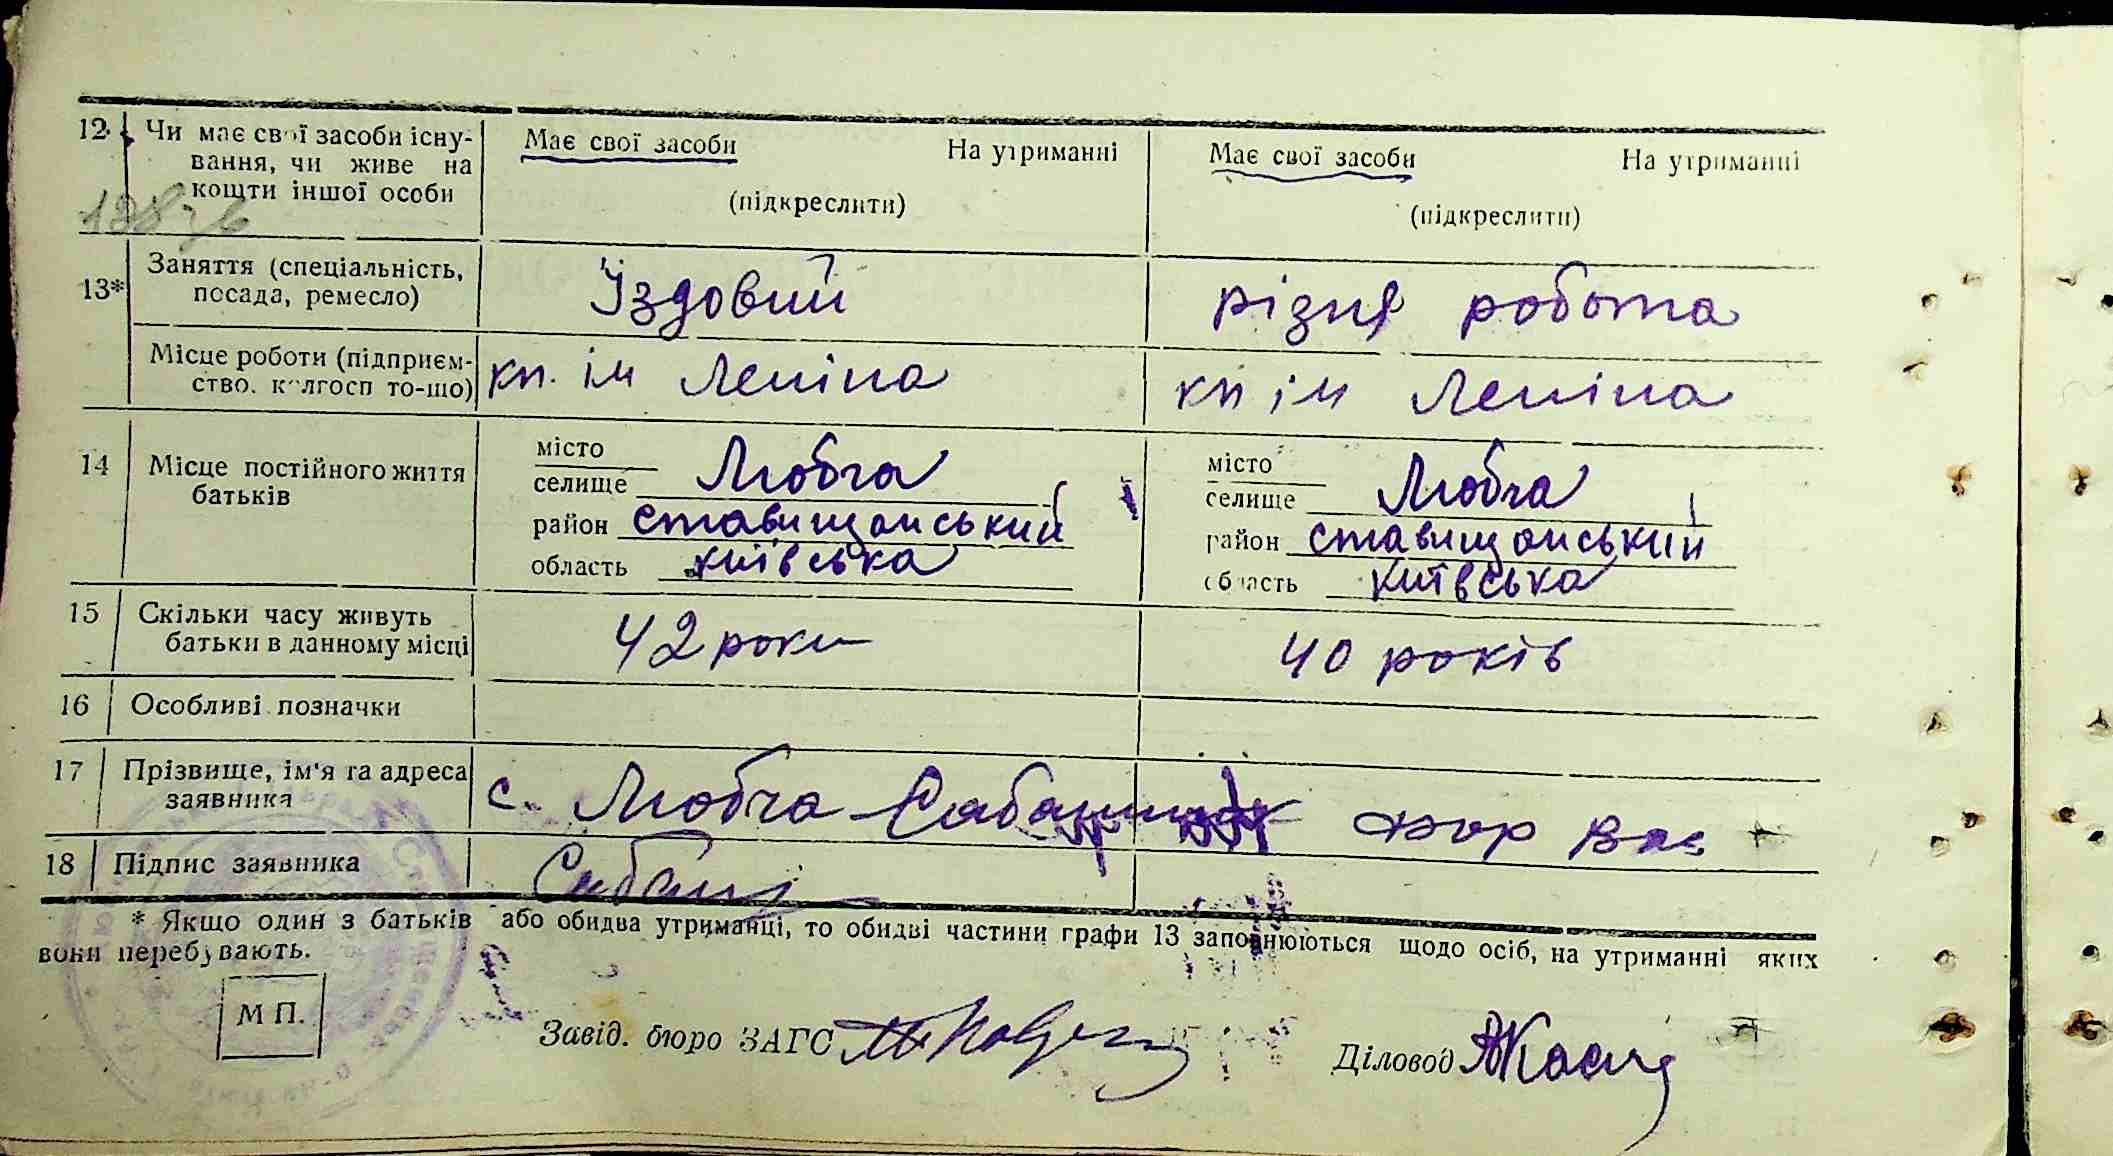 12. Чи має свої засоби існу-
вання, чи живе на
кошти іншої особи
Має свої засоби На утриманні
(підкреслити)
Має свої засоби На утриманні
(підкреслити)
13* Заняття (спеціальність,
посада, ремесло)
Їздовий
різня робота
Місце роботи (підприєм-
ство, колгосп то-що)
кп. ім Леніна
кп ім Леніна
14 Місце постійного життя
батьків
місто
селище Любча
район ставищанський
область київська
місто
селище Любча
район ставищанський
область київська
15 Скільки часу живуть
батьки в данному місці
42 роки
40 років
16 Особливі позначки
17 Прізвище, ім'я та адреса
заявника
с. Любча
18 Підпис заявника
* Якщо один з батьків або обидва утриманці, то обидві частини графи 13 заповнюються щодо осіб, на утриманні яких
вони перебувають.
М П.
Завід. бюро ЗАГС
Діловод